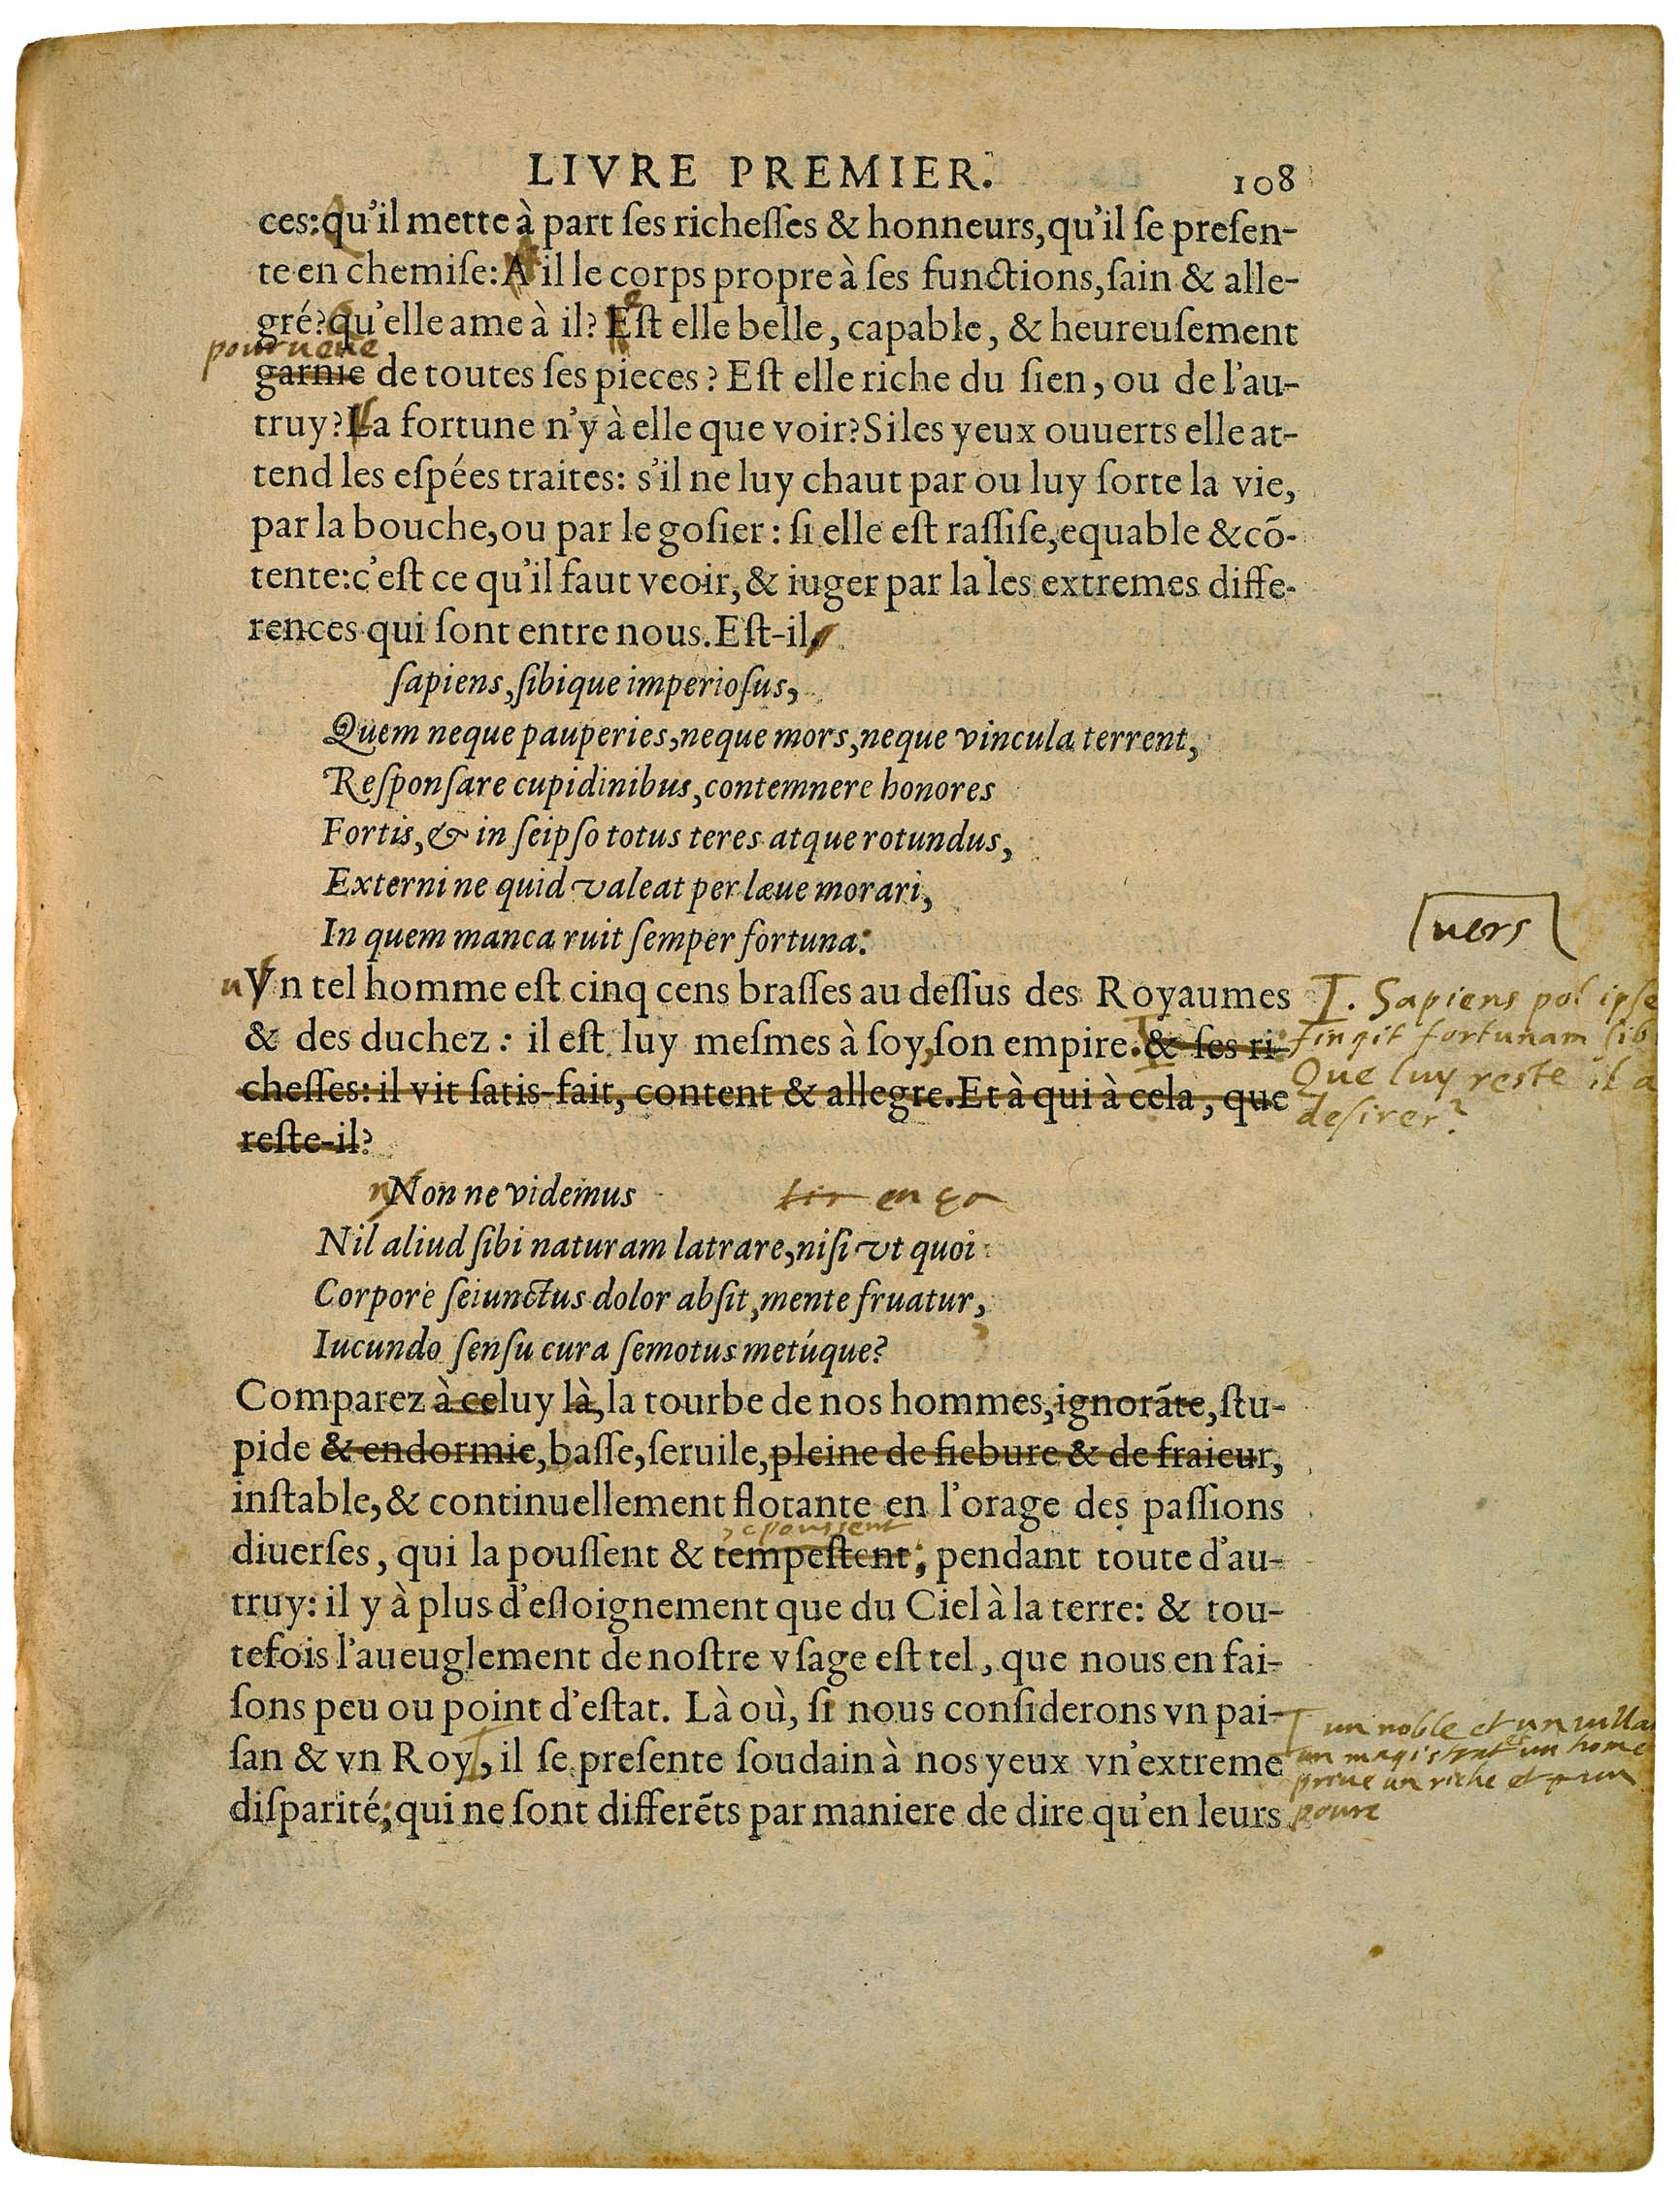 LIVRE PREMIER. 108
ces: qu'il mette à part ſes richeſſes & honneurs, qu'il ſe preſen-
te en chemiſe: A il le corps propre à ſes functions, ſain & alle-
gré? qu'elle ame à il? Eſt elle belle, capable, & heureuſement
pourueue
garnie de toutes ſes pieces? Eſt elle riche du ſien, ou de l'au-
truy? La fortune n'y à elle que voir? Si les yeux ouuerts elle at-
tend les eſpées traites: s'il ne luy chaut par ou luy ſorte la vie,
par la bouche, ou par le goſier: ſi elle eſt raſſiſe, equable & cõ-
tente: c'eſt ce qu'il faut veoir, & iuger par la les extremes diffe-
rences qui ſont entre nous. Eſt-il,
ſapiens, ſibique imperioſus,
Quem neque pauperies, neque mors, neque vincula terrent,
Reſponſare cupidinibus, contemnere honores
Fortis, & in ſeipſo totus teres atque rotundus,
Externi ne quid valeat per læue morari,
In quem manca ruit ſemper fortuna:
vers
Vn tel homme eſt cinq cens braſſes au deſſus des Royaumes
& des duchez: il eſt luy meſmes à ſoy, ſon empire. & ſes ri-
cheſſes: il vit ſatis-fait, content & allegre. Et à qui à cela, que
reſte-il?
I. Sapiens pol ipse
fingit fortunam sib
Que luy reste il a
desirer?
Non ne videmus
tir en ça
Nil aliud ſibi naturam latrare, niſi vt quoi
Corpore ſeiunctus dolor abſit, mente fruatur,
Iucundo ſenſu cura ſemotus metúque?
Comparez à celuy là, la tourbe de nos hommes, ignorãte, ſtu-
pide & endormie, baſſe, ſeruile, pleine de fiebure & de fraieur,
inſtable, & continuellement flotante en l'orage des paſſions
repoussent
diuerſes, qui la pouſſent & tempeſtent; pendant toute d'au-
truy: il y à plus d'eſloignement que du Ciel à la terre: & tou-
tefois l'aueuglement de noſtre vſage eſt tel, que nous en fai-
ſons peu ou point d'eſtat. Là où, ſi nous conſiderons vn pai-
ſan & vn Roy, il ſe preſente ſoudain à nos yeux vn'extreme
diſparité, qui ne ſont differẽts par maniere de dire qu'en leurs
I un noble et un villa
un magistrat et un home
prive un riche et un
povre